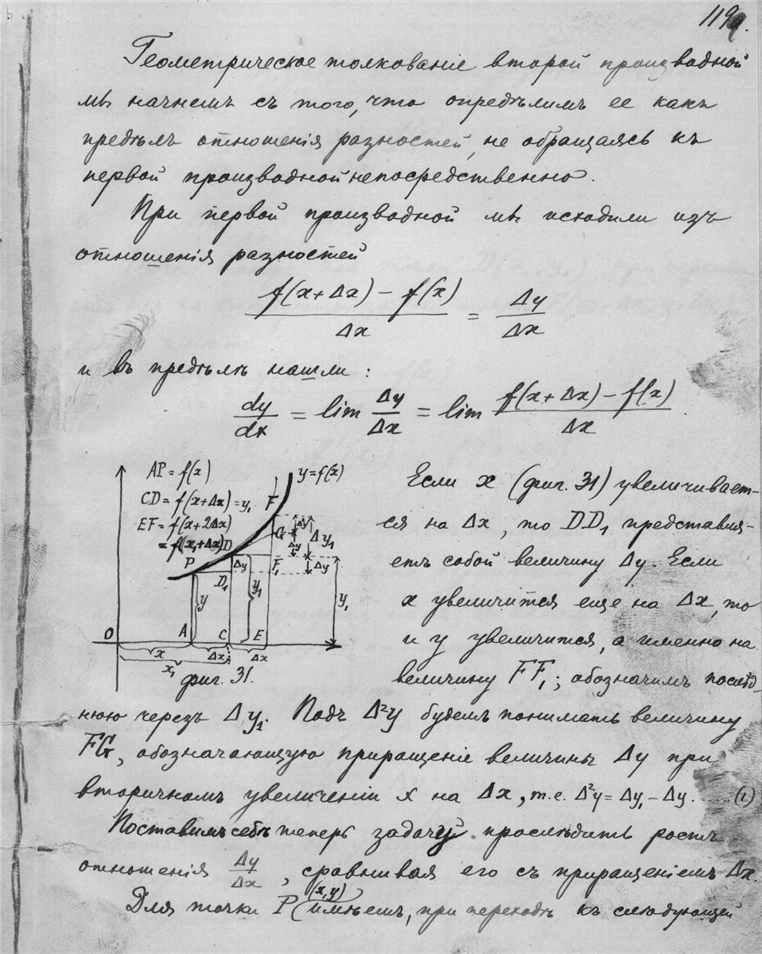 119а.
Геометрическое толкованіе второй производной
мы начнемъ съ того, что опредѣлимъ ее какъ
предѣлъ отношенія разностей, не обращаясь къ
первой производной непосредственно.
При первой производной мы исходили изъ
отношенія разностей
(f(x+Δx) − f(x))/Δx = Δy/Δx
и въ предѣлѣ нашли:
dy/dx = lim Δy/Δx = lim (f(x+Δx) − f(x))/Δx.
AP = f(x)
CD = f(x+Δx) = y₁
EF = f(x+2Δx)
= f(x₁+Δx)
y=f(x)
F
G
Δ²y
Δy
Δy₁
P
D
Δy
F₁
Δy
D₁
y
y₁
y₁
O
A
C
E
x
Δx
Δx
x₁
фиг. 31.
Если x (фиг. 31) увеличивает-
ся на Δx, то DD₁ представля-
етъ собой величину Δy. Если
x увеличится еще на Δx, то
и y увеличится, а именно на
величину FF₁; обозначимъ послѣд-
нюю черезъ Δy₁. Подъ Δ²y будемъ понимать величину
FG, обозначающую приращеніе величины Δy при
вторичномъ увеличеніи x на Δx, т.е. Δ²y = Δy₁ − Δy. .... (1)
Поставимъ себѣ теперь задачей прослѣдить ростъ
отношенія Δy/Δx, сравнивая его съ приращеніемъ Δx.
Для точки P(x,y) имѣемъ, при переходѣ къ слѣдующей